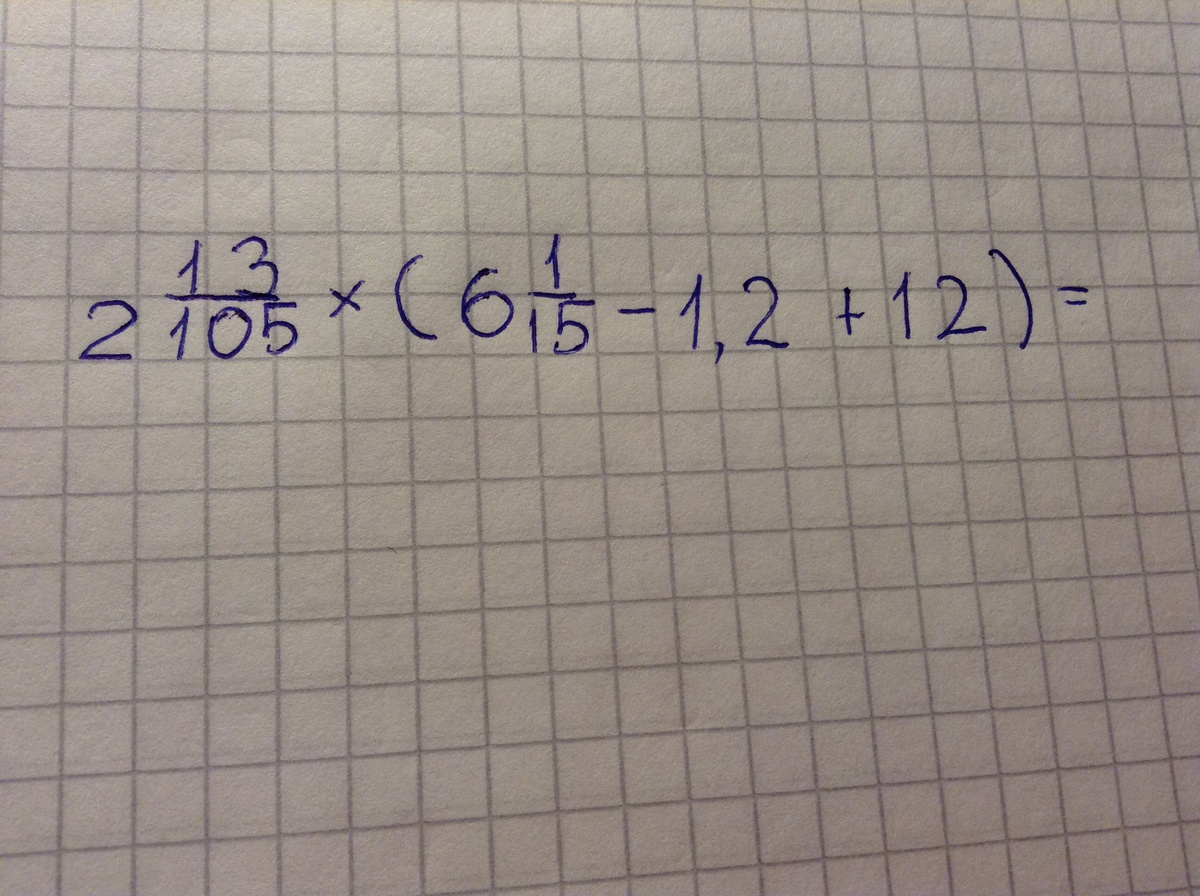 2 13/105 × ( 6 1/15 - 1,2 + 12 ) =